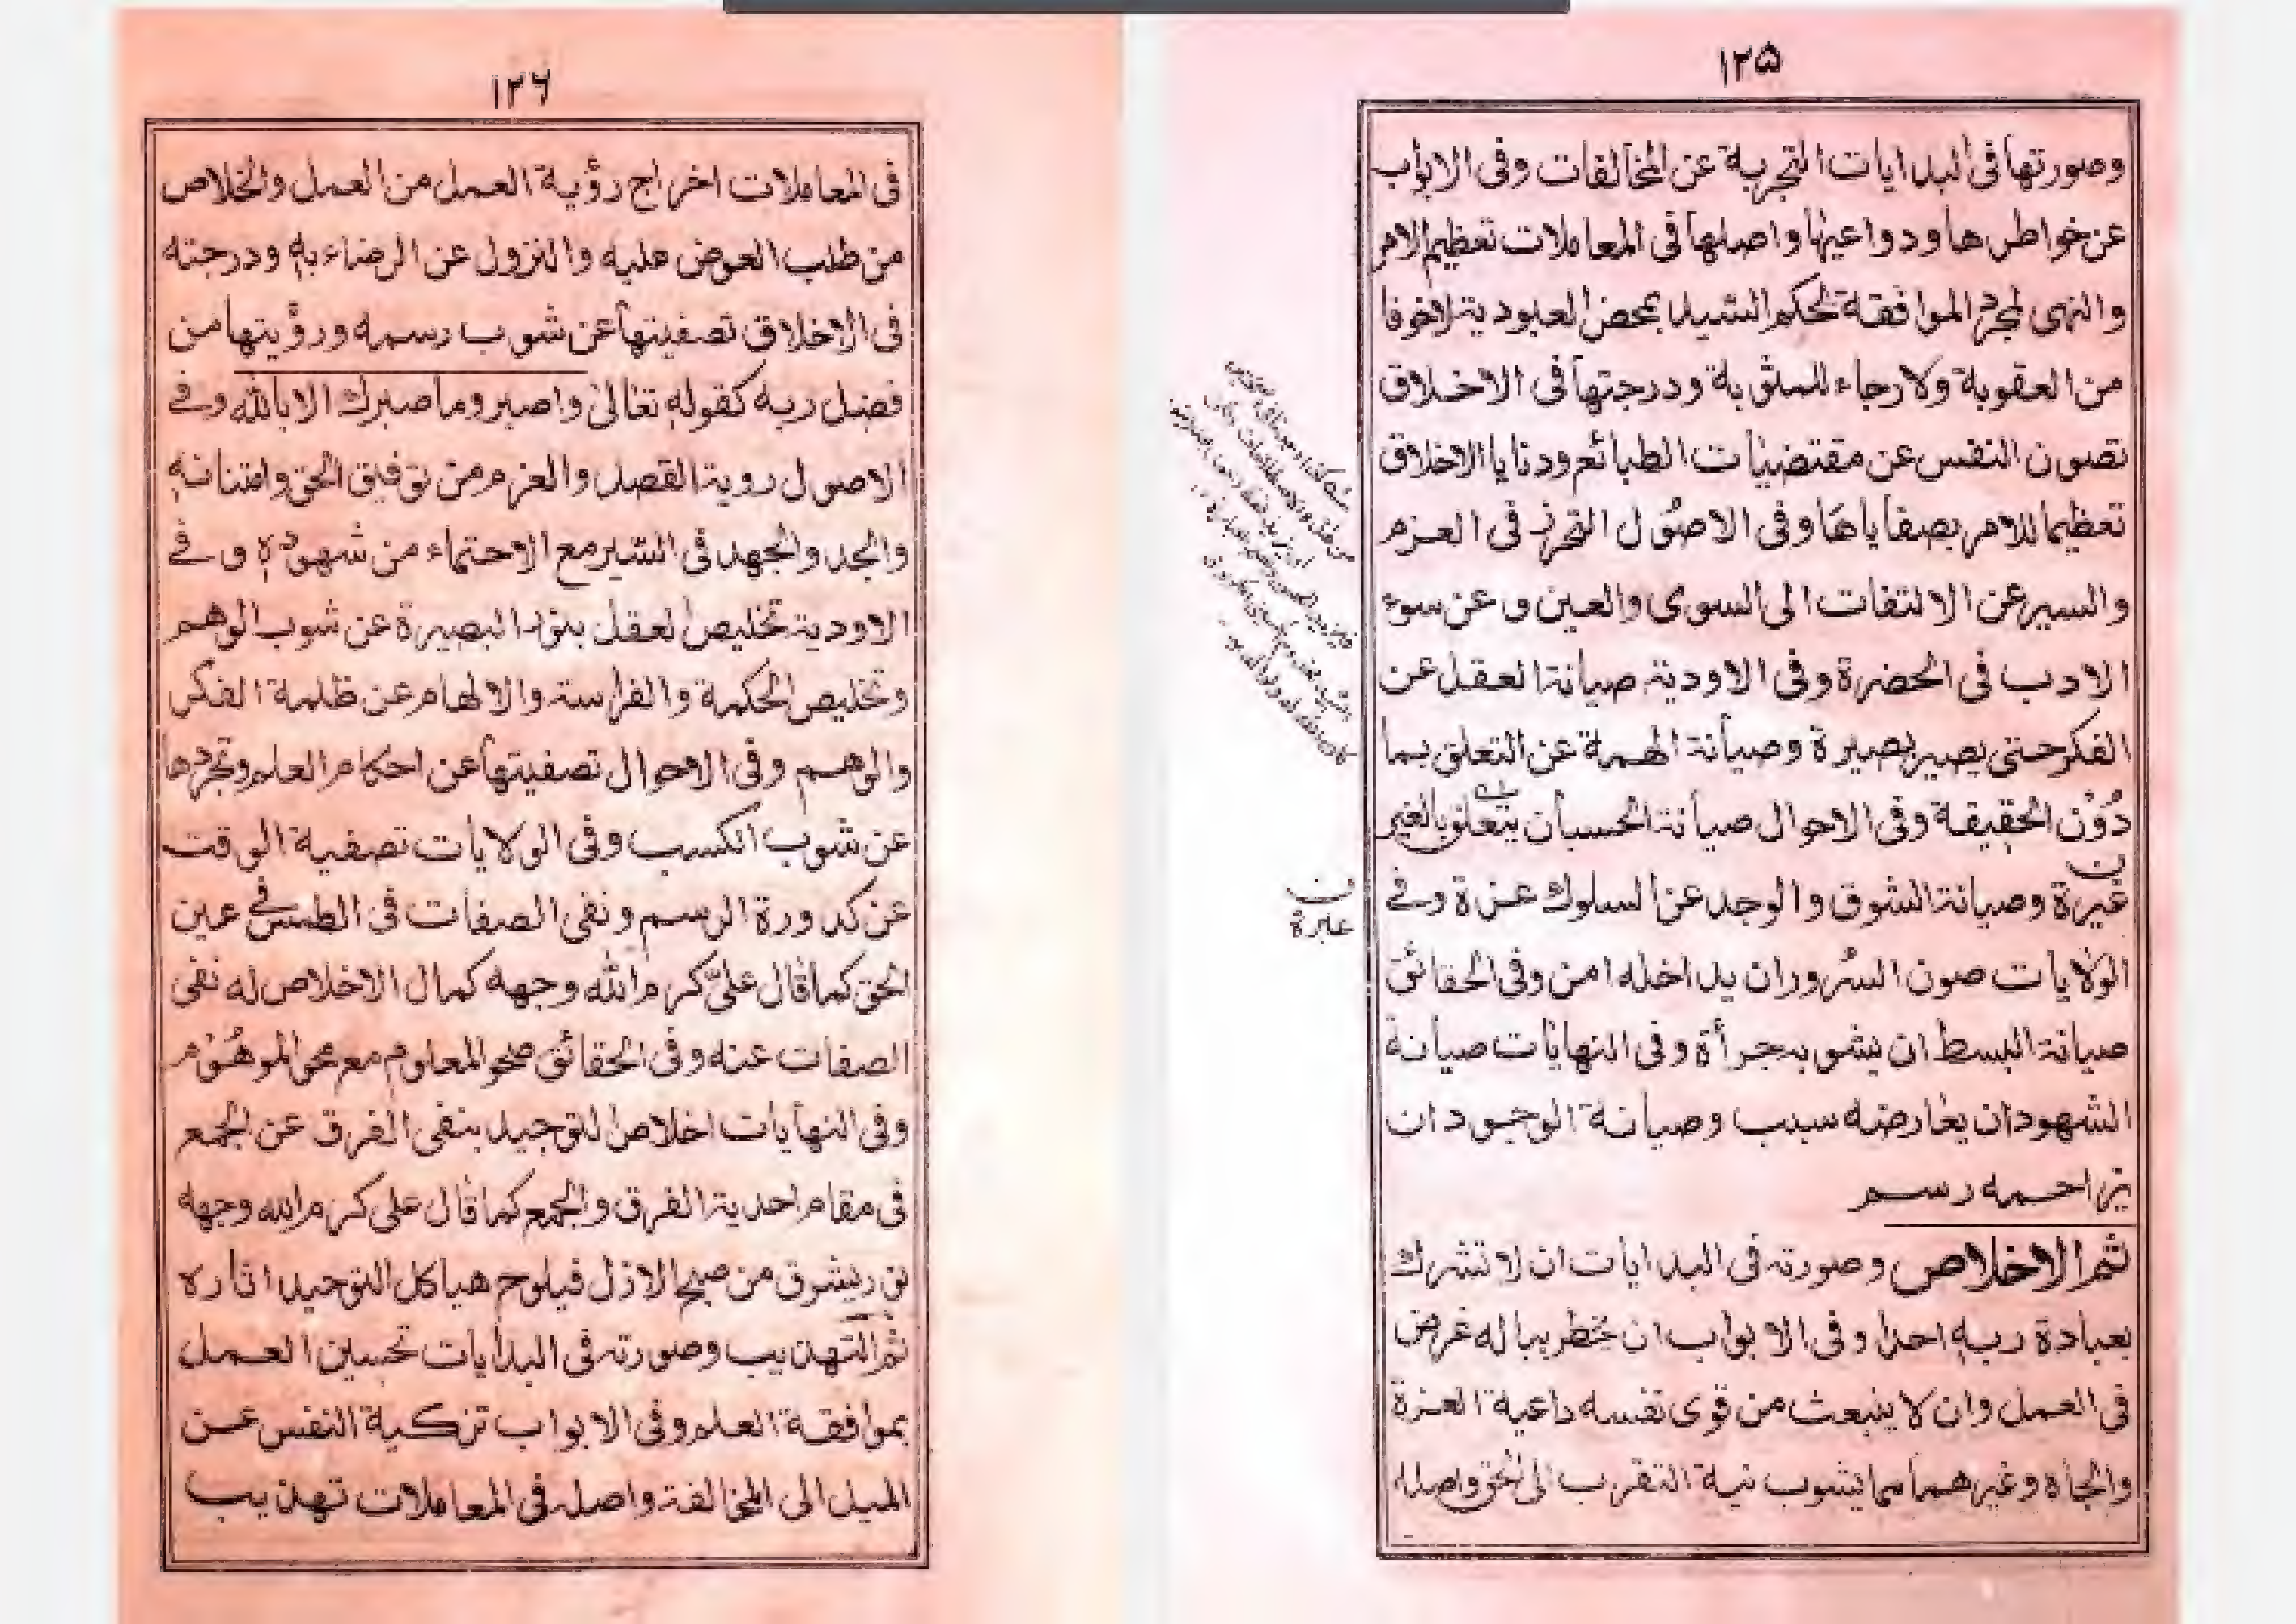 ١٢٥
وصورتها فى البدايات التجربة عن المخالفات وفى الابواب
عن خواطرها ودواعيها واصلها فى المعاملات تعظيم الامر
والنهى لمجرد الموافقة لحكم السيد بمحض العبودية لاخوفا
من العقوبة ولا رجاء للمثوبة ودرجتها فى الاخلاق
تصون النفس عن مقتضيات الطبائع ودنايا الاخلاق
تعظيما للامر بصفاياها وفى الاصول التحرز فى العزم
والسير عن الالتفات الى السوى والعين وعن سوء
الادب فى الحضرة وفى الاودية صيانة العقل عن
الفكر حتى يصير بصيرة وصيانة الهمة عن التعلق بما
دُوْن الحقيقة وفى الاحوال صيانة الحب ان يتعلق بالغير
غيرة وصيانة الشوق والوجد عن السلوك عزة وفے
ن
عبرة
الولايات صون السُرور ان يداخله امن وفى الحقائق
صيانة البسط ان يشوبه جرأة وفى النهايات صيانة
الشهود ان يعارضه سبب وصيانة الوجود ان
يزاحمه رسم
ثم الاخلاص وصورته فى البدايات ان لا تشرك
بعبادة ربه احدا وفى الابواب ان يخطر بباله غرض
فى العمل وان لا ينبعث من قوى نفسه داعية العزة
والجاه وغيرهما مما يشوب نية التقرب الى الحق واصله
١٢٦
فى المعاملات اخراج رؤية العمل من العمل والخلاص
من طلب العوض عليه والنزول عن الرضاء به ودرجته
فى الاخلاق تصفيتها عن شوب رسمه ورؤيتها من
فضل ربه كقوله تعالىٰ واصبر وما صبرك الا بالله وفے
الاصول روية القصد والعزم من توفيق الحق وامتنانه
والجد والجهد فى السير مع الاحتماء من شهوده وفے
الاودية تخليص العقل بنور البصيرة عن شوب الوهم
وتخليص الحكمة والفراسة والالهام عن ظلمة الفكر
والوهم وفى الاحوال تصفيتها عن احكام العلم وتجردها
عن شوب الكسب وفى الولايات تصفية الوقت
عن كدورة الرسم ونفى الصفات فى الطمس فے عين
الحق كما قال علىّ كرم الله وجهه كمال الاخلاص له نفى
الصفات عنه وفى الحقائق صحو المعلوم مع محو الموهُوْم
وفى النهايات اخلاص التوحيد بنفى الفرق عن الجمع
فى مقام احدية الفرق والجمع كما قال على كرم الله وجهه
نور يشرق من صبح الازل فيلوح هياكل التوحيد اثاره
ثم التهذيب وصورته فى البدايات تحسين العمل
بموافقة العلم وفى الابواب تزكية النفس عن
الميل الى المخالفة واصله فى المعاملات تهذيب